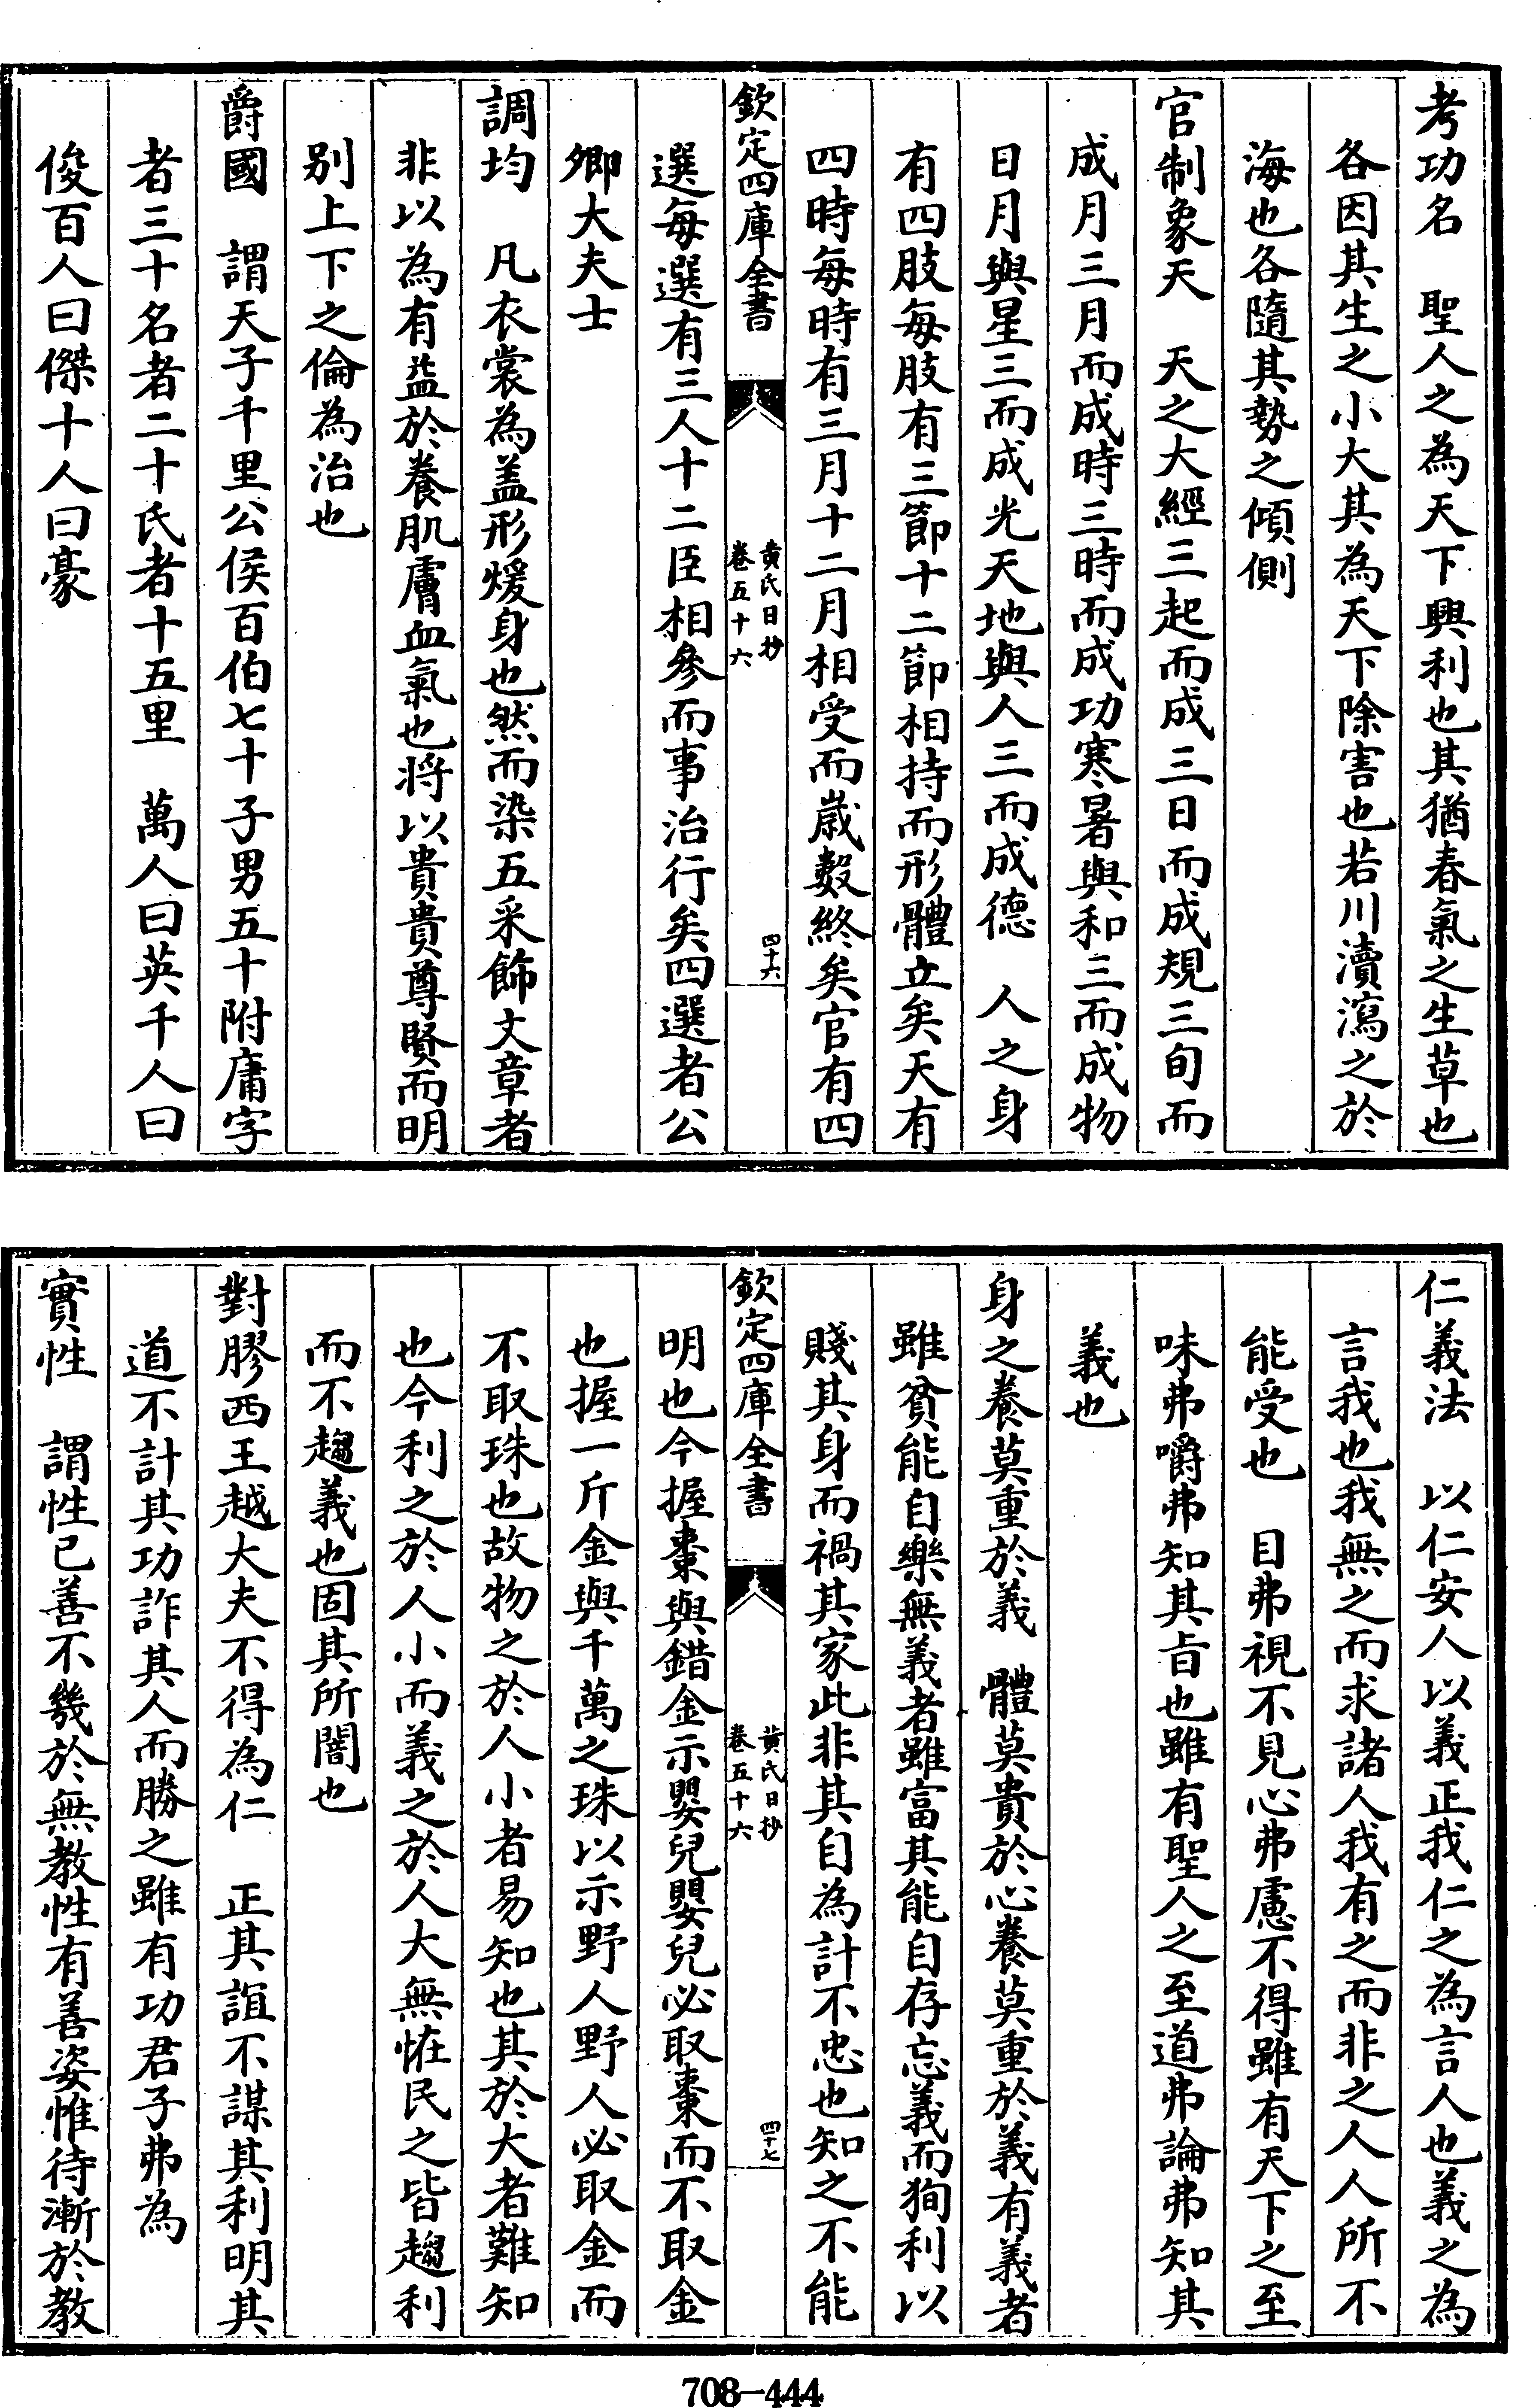 考功名　聖人之為天下興利也其猶春氣之生草也
各因其生之小大其為天下除害也若川瀆瀉之於
海也各隨其勢之傾側
官制象天　天之大經三起而成三日而成規三旬而
成月三月而成時三時而成功寒暑與和三而成物
日月與星三而成光天地與人三而成德　人之身
有四肢每肢有三節十二節相持而形體立矣天有
四時每時有三月十二月相受而歲數終矣官有四
欽定四庫全書
黄氏日抄
卷五十六
四十六
選每選有三人十二臣相參而事治行矣四選者公
卿大夫士
調均　凡衣裳為盖形煖身也然而染五采飾文章者
非以為有益於養肌膚血氣也將以貴貴尊賢而明
别上下之倫為治也
爵國　謂天子千里公侯百伯七十子男五十附庸字
者三十名者二十氏者十五里　萬人曰英千人曰
俊百人曰傑十人曰豪
仁義法　以仁安人以義正我仁之為言人也義之為
言我也我無之而求諸人我有之而非之人人所不
能受也　目弗視不見心弗慮不得雖有天下之至
味弗嚼弗知其旨也雖有聖人之至道弗論弗知其
義也
身之養莫重於義　體莫貴於心養莫重於義有義者
雖貧能自樂無義者雖富其能自存忘義而狥利以
賤其身而禍其家此非其自為計不忠也知之不能
欽定四庫全書
黄氏日抄
卷五十六
四十七
明也今握棗與錯金示嬰兒嬰兒必取棗而不取金
也握一斤金與千萬之珠以示野人野人必取金而
不取珠也故物之於人小者易知也其於大者難知
也今利之於人小而義之於人大無恠民之皆趨利
而不趨義也固其所闇也
對膠西王越大夫不得為仁　正其誼不謀其利明其
道不計其功詐其人而勝之雖有功君子弗為
實性　謂性已善不幾於無教性有善姿惟待漸於教
708-444